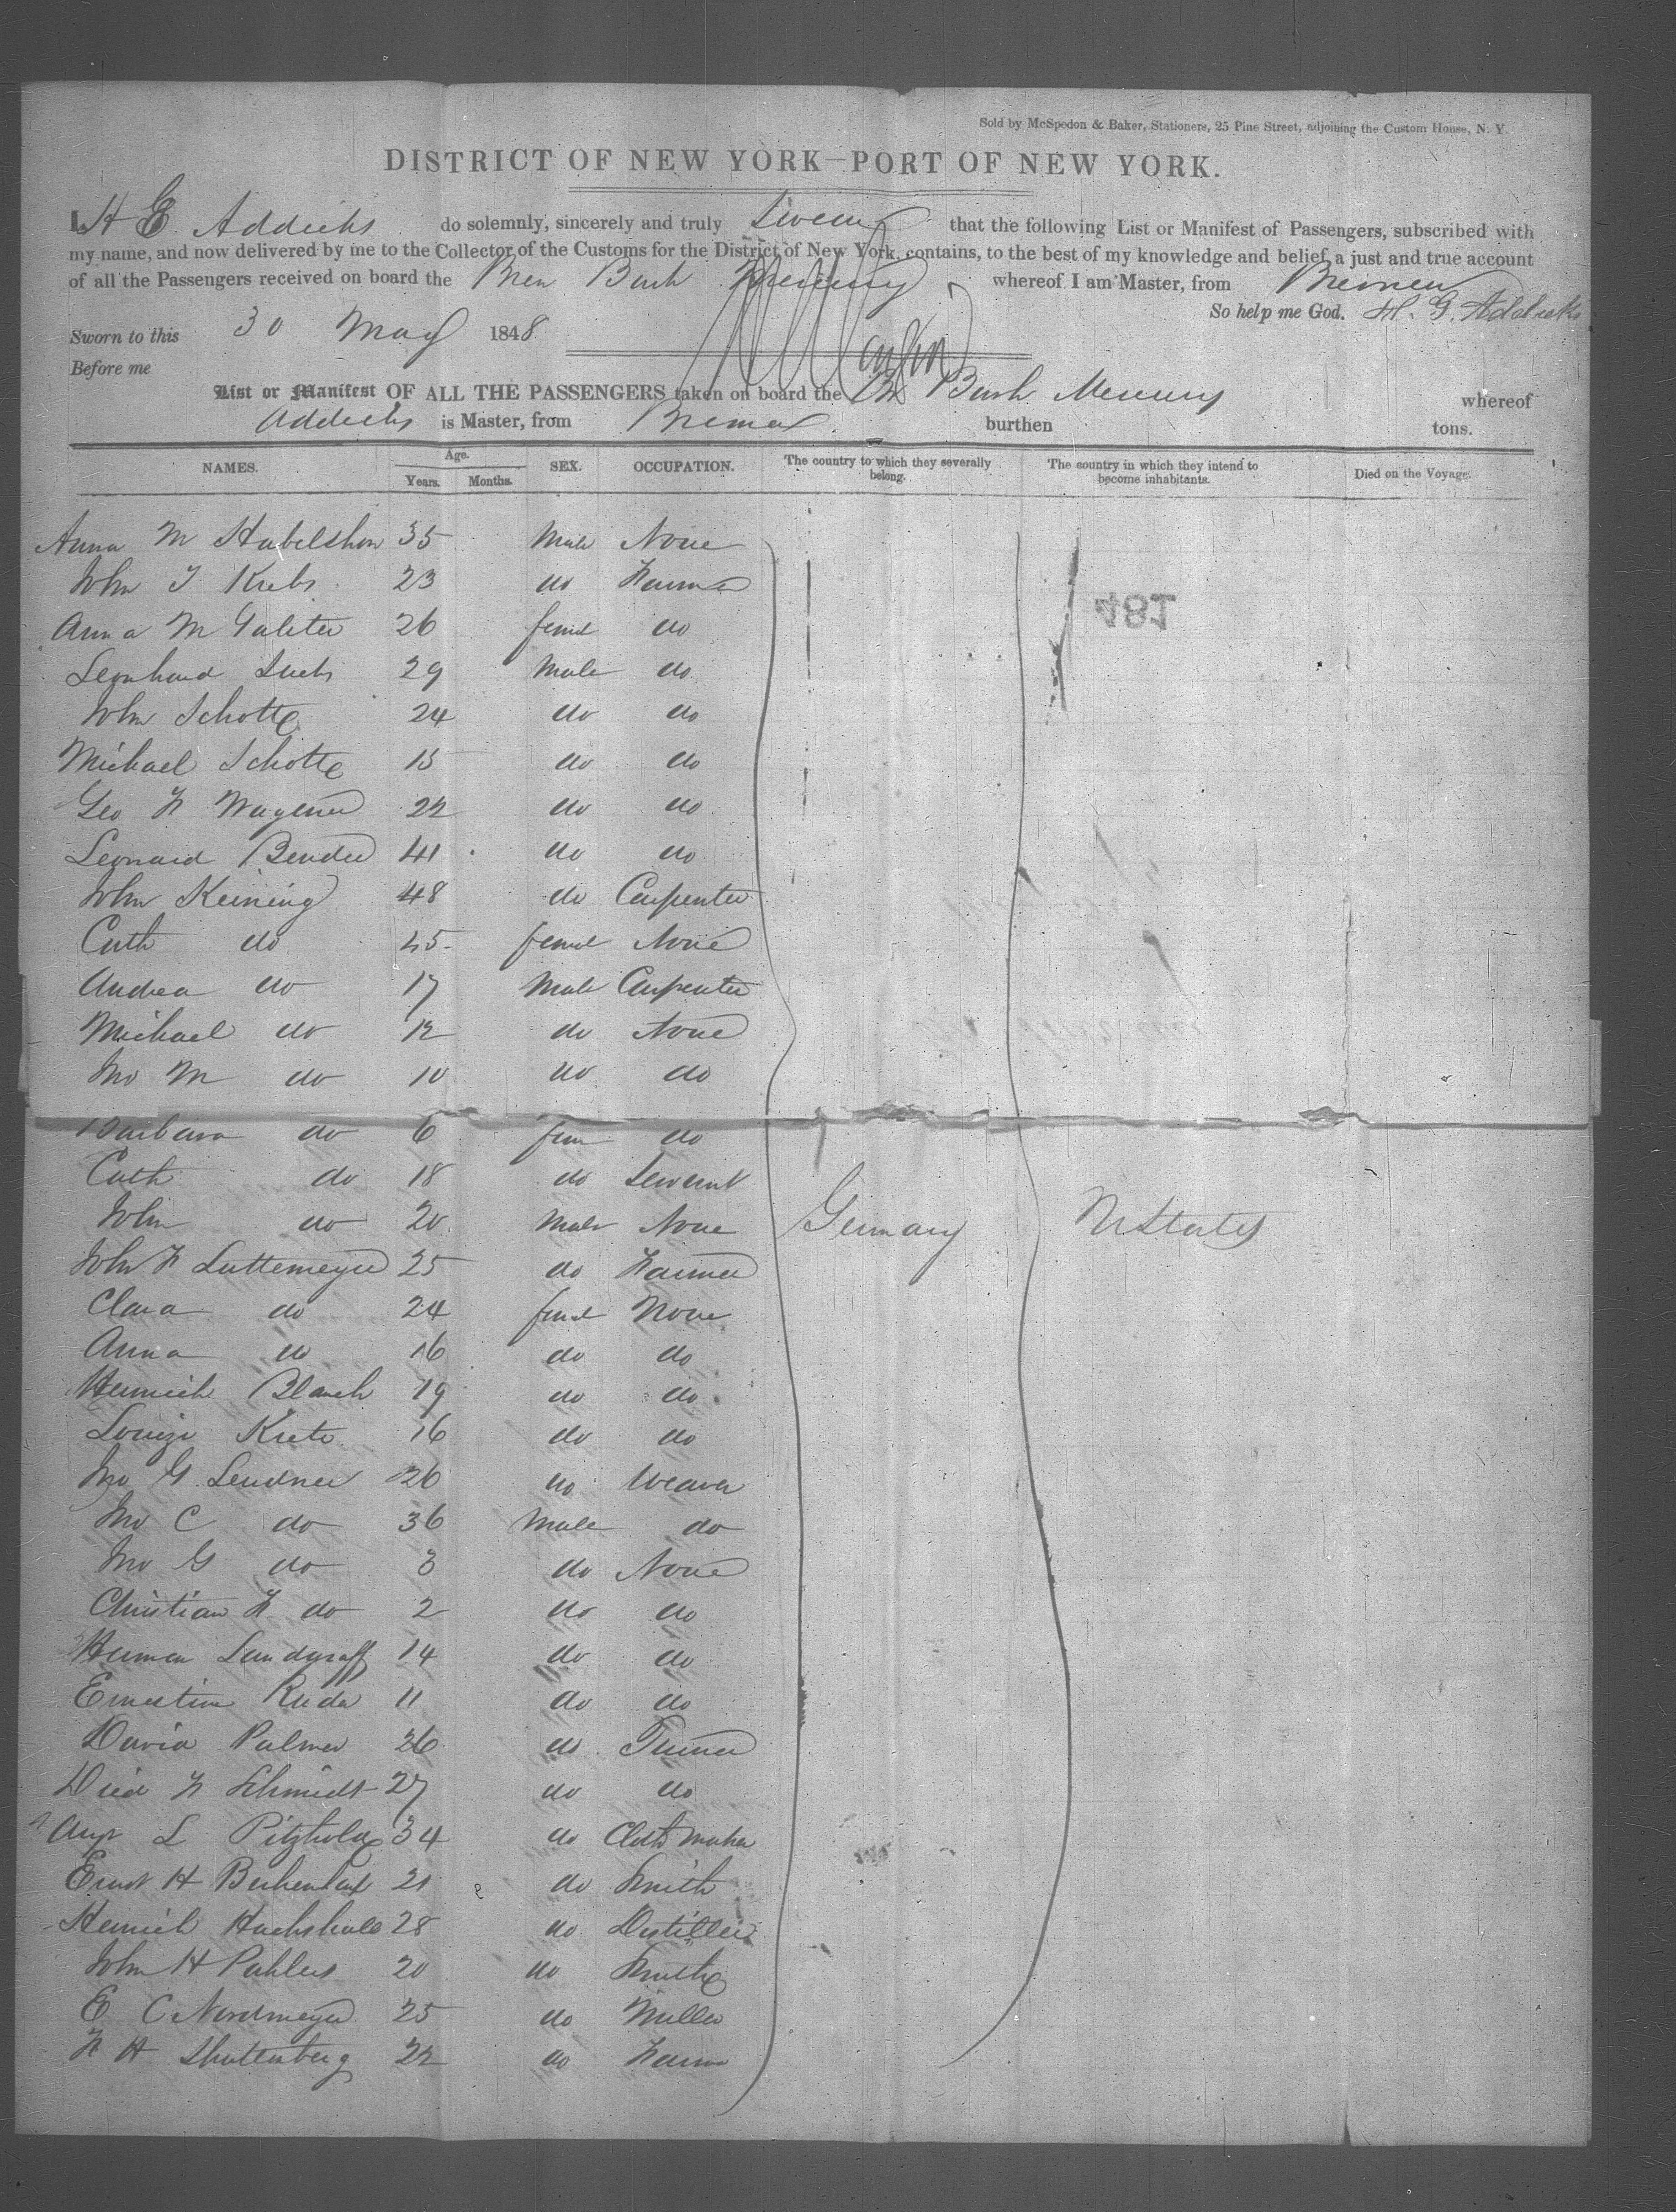 Sold by McSpedon & Baker, Stationers, 25 Pine Street, adjoining the Custom House, N. Y.
DISTRICT OF NEW YORK—PORT OF NEW YORK.
I, H E Addicks do solemnly, sincerely and truly Swear that the following List or Manifest of Passengers, subscribed with
my name, and now delivered by me to the Collector of the Customs for the District of New York, contains, to the best of my knowledge and belief, a just and true account
of all the Passengers received on board the Brem Bark Mercury whereof I am Master, from Bremen
So help me God. H. G. Addicks
Sworn to this 30 May 1848
Before me
List or Manifest OF ALL THE PASSENGERS taken on board the Br Bark Mercury whereof
Addicks is Master, from Bremen burthen tons.
NAMES. Age. Years. Months. SEX. OCCUPATION. The country to which they severally belong. The country in which they intend to become inhabitants. Died on the Voyage.
Anna M 35 Male None
John T Krebs 23 do Farmer
481
Anna M Galster 26 femal do
Leonhard 29 Male do
John Schotte 24 do do
Michael Schotte 15 do do
Geo F Wagener 22 do do
Leonard Bender 41 do do
John Keining 48 do Carpenter
Cath do 45 femal None
Andrea do 17 Male Carpenter
Michael do 12 do None
Jno M do 10 do do
Barbara do 6 fem do
Cath do 18 do Servant
John do 20 Male None Germany U States
John F Luttemeyer 25 do Farmer
Clara do 24 femal None
Anna do 16 do do
Heinrich Blanch 19 do do
Louize 16 do do
Jno G Lendner 26 do Weaver
Jno C do 36 Male do
Jno G do 3 do None
Christian F do 2 do do
Herman Landgraff 14 do do
Ernestine Ruda 11 do do
David Palmer 26 do Turner
Died F Schmidt 27 do do
Aug L Pitzhold 34 do Cloth maker
Ernst H 21 do Smith
Heinrich 28 do Distiller
John H Pahlers 20 do Smith
E C Nordmeyer 25 do Miller
F H Shultenberg 22 do Farmer